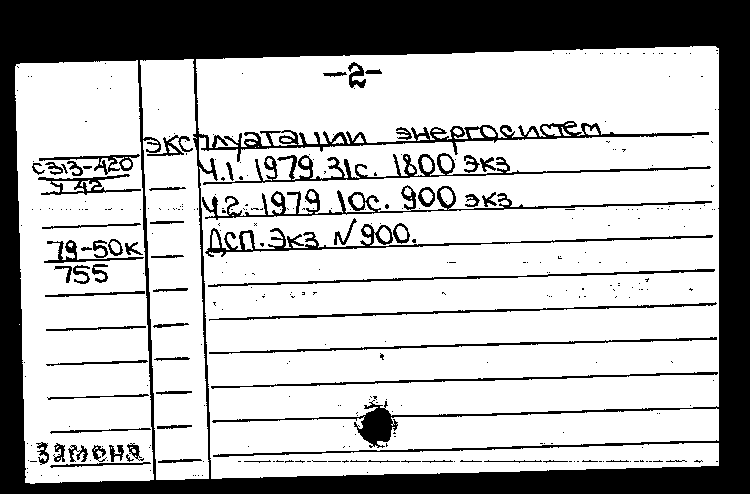 -2-
эксплуатации энергосистем.
С313-420
У 42
Ч.1. 1979. 31с. 1800 экз.
Ч.2. 1979. 10с. 900 экз.
79-50к
755
ДСП. Экз. №900.
Замена